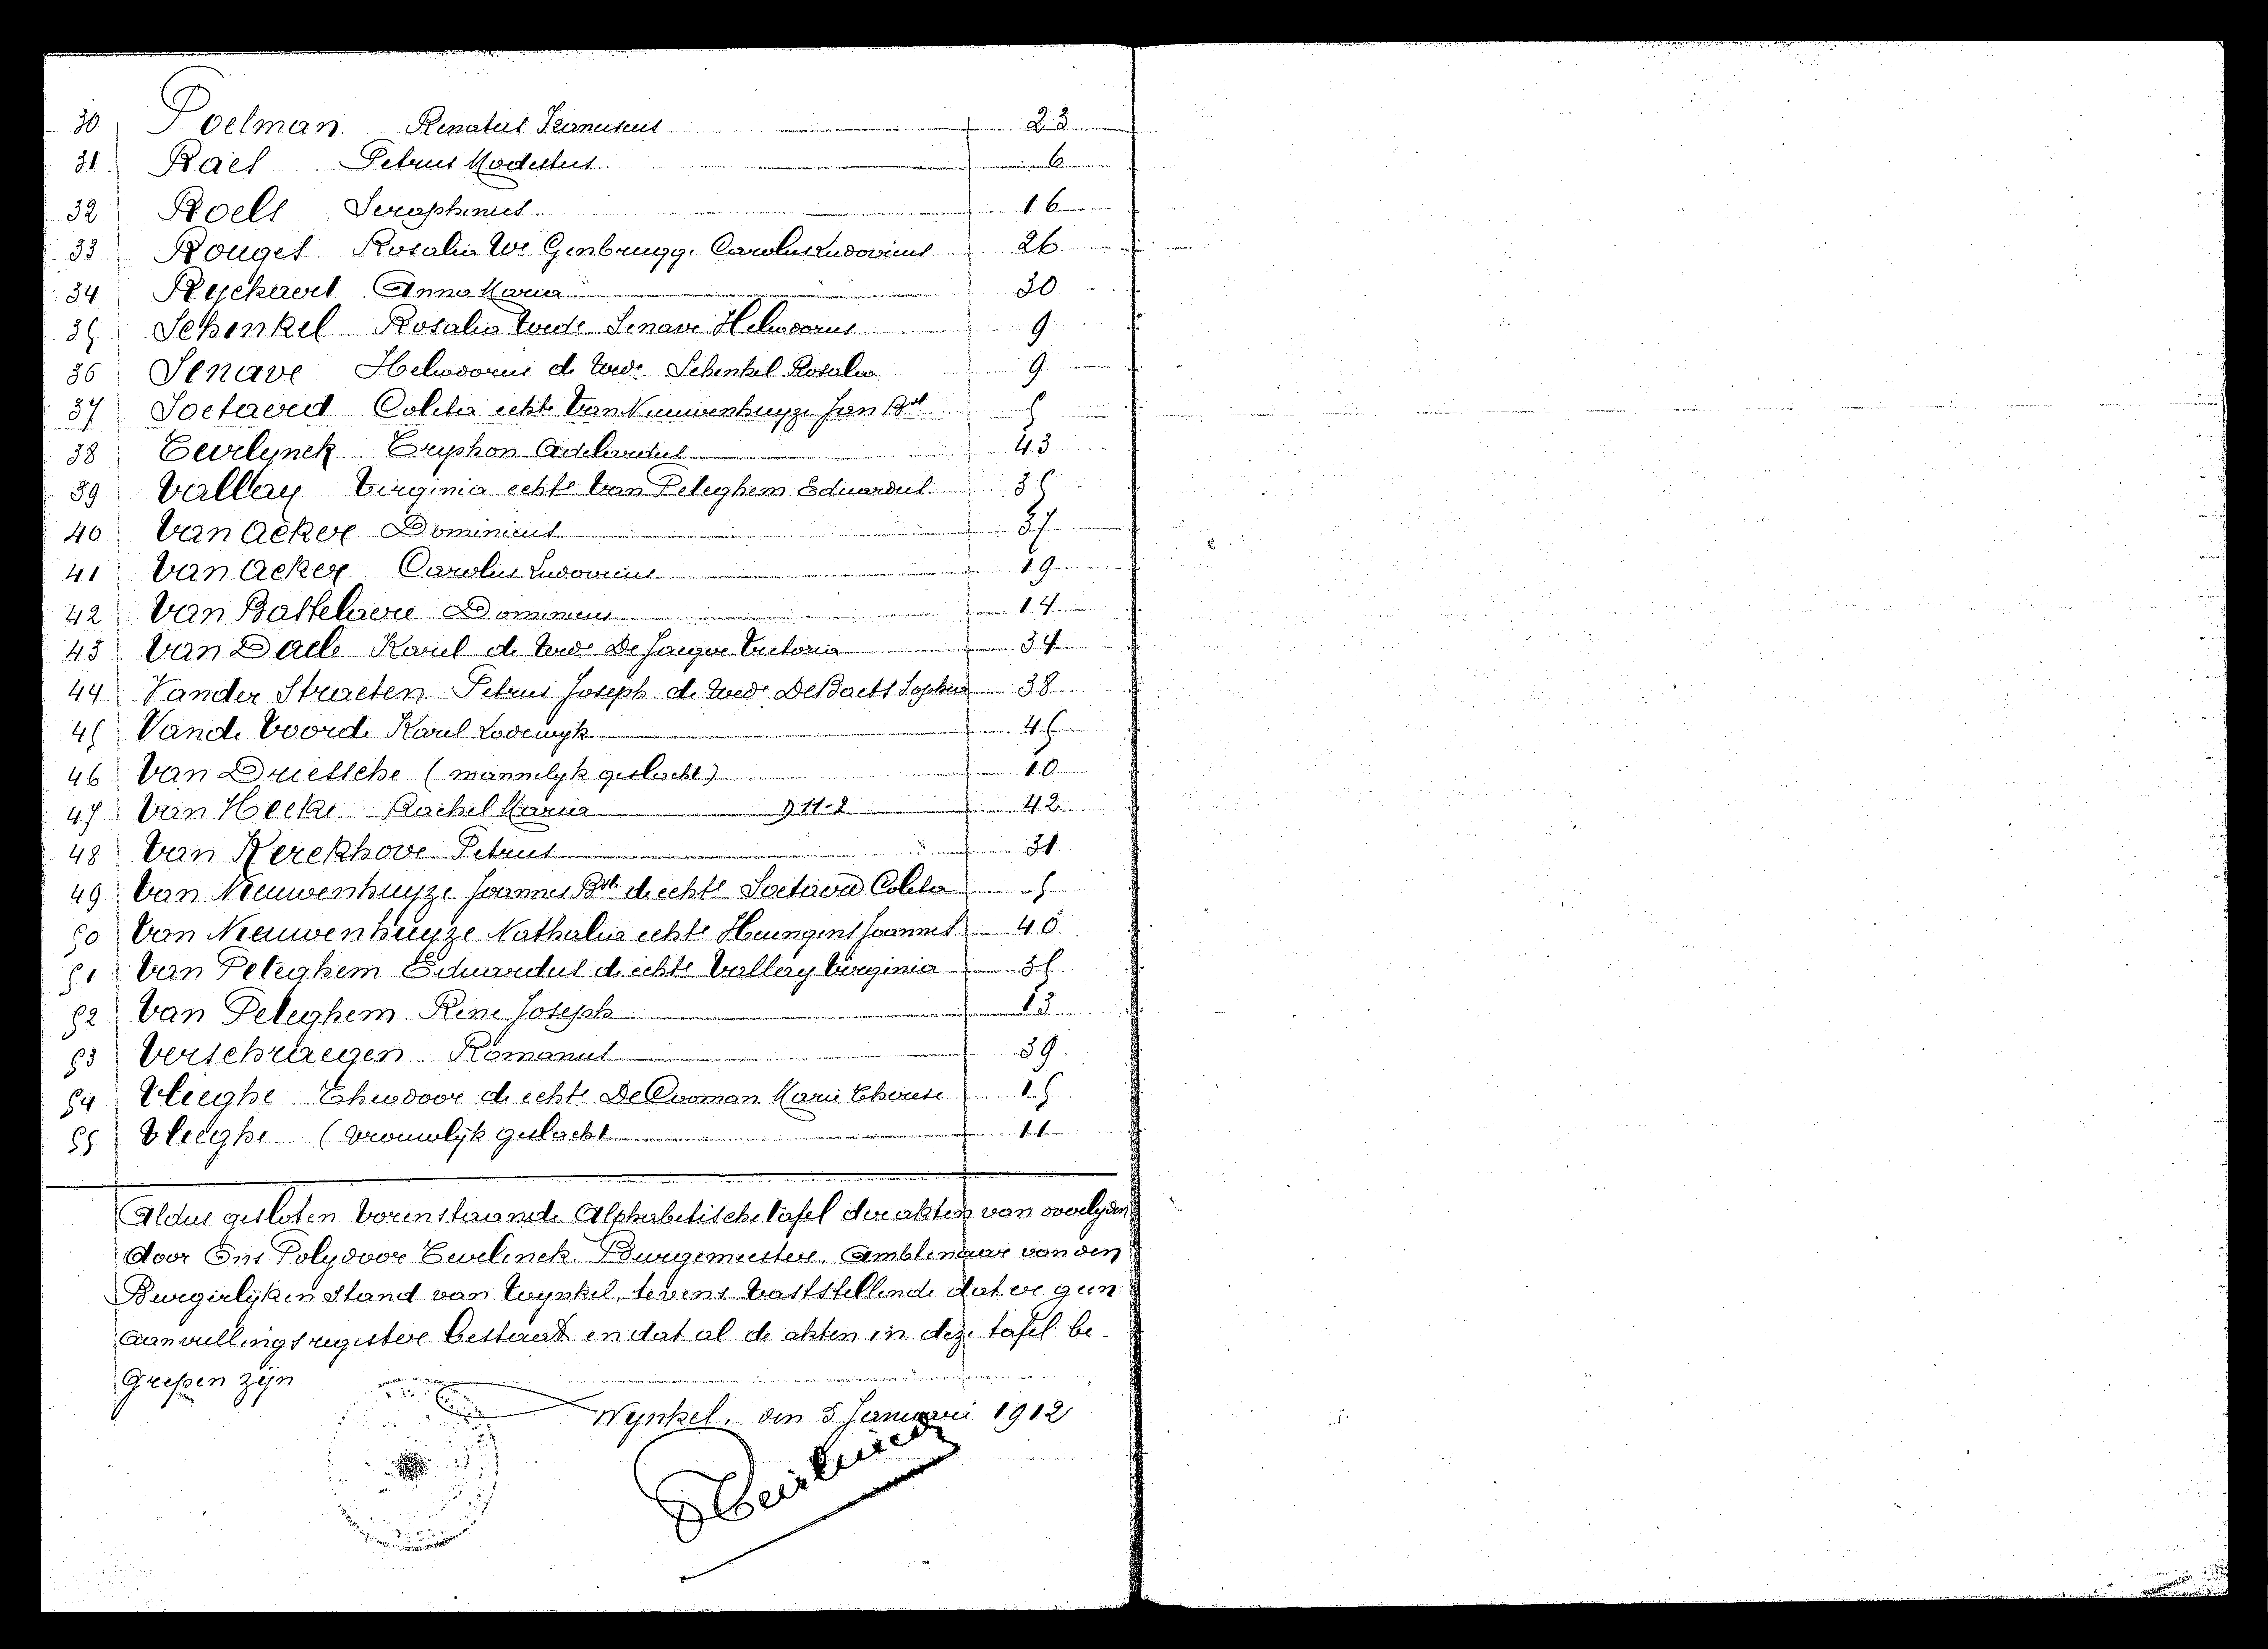 30 Poelman Renatus Franciscus 23
31 Raes Petrus Modestus 6
32 Roels Seraphinus 16
33 Rouges Rosalia We Genbrugge Carolus Ludovicus 26
34 Ryckaert Anna Maria 30
35 Schenkel Rosalia Wede Senave Heliodorus 9
36 Senave Heliodorus de Wede Schenkel Rosalia 9
37 Soetaerd Coleta echte Van Nieuwenhuyze Jan Bte 5
38 Tevelynck Tryphon Adelaidus 43
39 Vallaey Virginia echte Van Peteghem Eduardus 35
40 Van Acker Dominicus 37
41 Van Acker Carolus Ludovicus 19
42 Van Basselaere Dominicus 14
43 Van Daele Karel de Wede De Jaeger Victoria 34
44 Vander Straeten Petrus Joseph de Wede DeBaets Sophia 38
45 Vande Voorde Karel Lodewyk 45
46 Van Driessche (mannelyk geslacht) 10
47 Van Hecke Rachel Maria 9 11-2 42
48 Van Kerckhove Petrus 31
49 Van Nieuwenhuyze Joannes Bte de echte Soetaerd Coleta 5
50 Van Nieuwenhuyze Nathalia echte Huungens Joannes 40
51 Van Peteghem Eduardus de echte Vallaey Virginia 35
52 Van Peteghem Rene Joseph 13
53 Verschraegen Romanus 39
54 Vlieghe Theodoor de echte De Cooman Marie Therese 15
55 Vlieghe (vrouwlijk geslacht 11
Aldus gesloten vorenstaande Alphabetische tafel der akten van overlyden
door Ons Polydoor Tevelinck, Burgemeester, Ambtenaar van den
Burgerlijken Stand van Wynkel, tevens vaststellende dat er geen
aanvullingsregister bestaat en dat al de akten in deze tafel be-
grepen zijn
Wynkel, den 5 Januari 1912